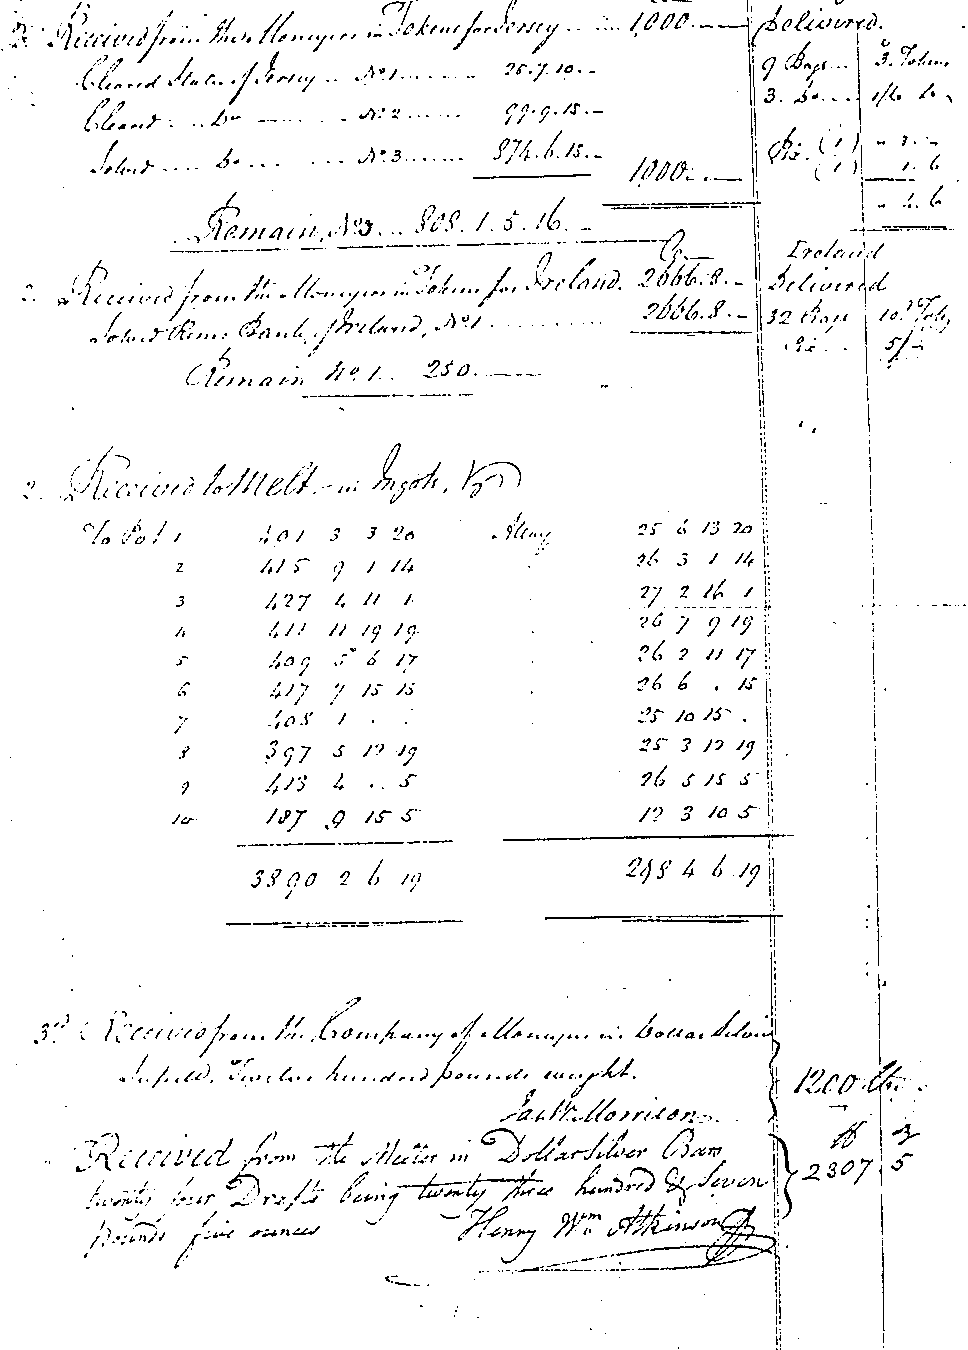 2 Received from the Moneyers in Tokens for Jersey 1,000. Delivered.
Cleared States of Jersey No 1 26.7.10. 9 Bags 3. Tokens
Cleared Do No 2 99.9.15. 3. Do 1/6 Do
Do No 3 874.6.15. 1,000.
(1) 3.
(1) 1.6
4.6
Remain, No 3 808.1.5.16.
Ireland
2. Received from the Moneyers in Tokens for Ireland. 2666.8. Delivered
Bank of Ireland, No 1 2666.8. 32 Bags 10d Tokens
5/
Remain No. 1. 250.
2. Received to Melt in Ingots,
To Pot 1 401 3 3 20 Alloy 25 6 13 20
2 415 9 1 14 26 3 1 14
3 427 4 11 1 27 2 16 1
4 411 11 19 19 26 7 9 19
5 409 5 6 17 26 2 11 17
6 417 7 15 15 26 6 . 15
7 408 1 . . 25 10 15 .
8 397 5 12 19 25 3 12 19
9 413 4 . . 5 26 5 15 5
10 187 9 15 5 12 3 10 5
3890 2 6 19 248 4 6 19
3rd Received from the Company of Moneyers in Dollar Silver
Twelve hundred pounds weight. 1200
Jas Wm Morrison
Received from the Melter in Dollar Silver Bars
twenty four Drafts being twenty three hundred & Seven 2307 5
pounds five ounces Henry Wm Atkinson